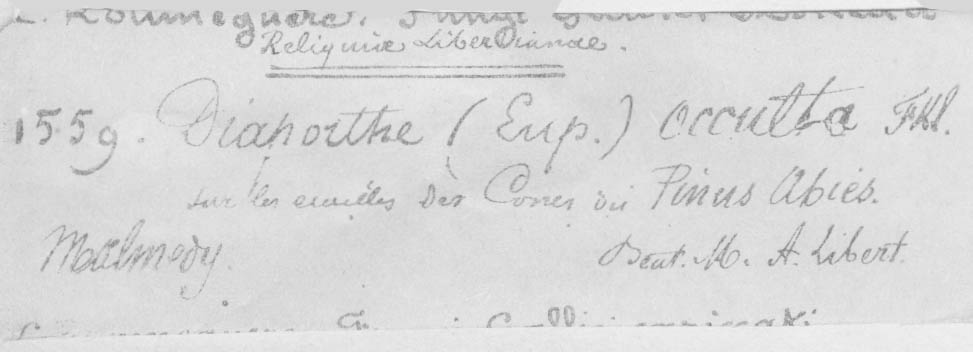 C. Roumeguère. Fungi Gallici exsiccati
Reliquiae Libertianae.
1559. Diaporthe (Eup.) occulta Fkl.
sur les écailles des Cones du Pinus Abies.
Malmedy. M. A. Libert.